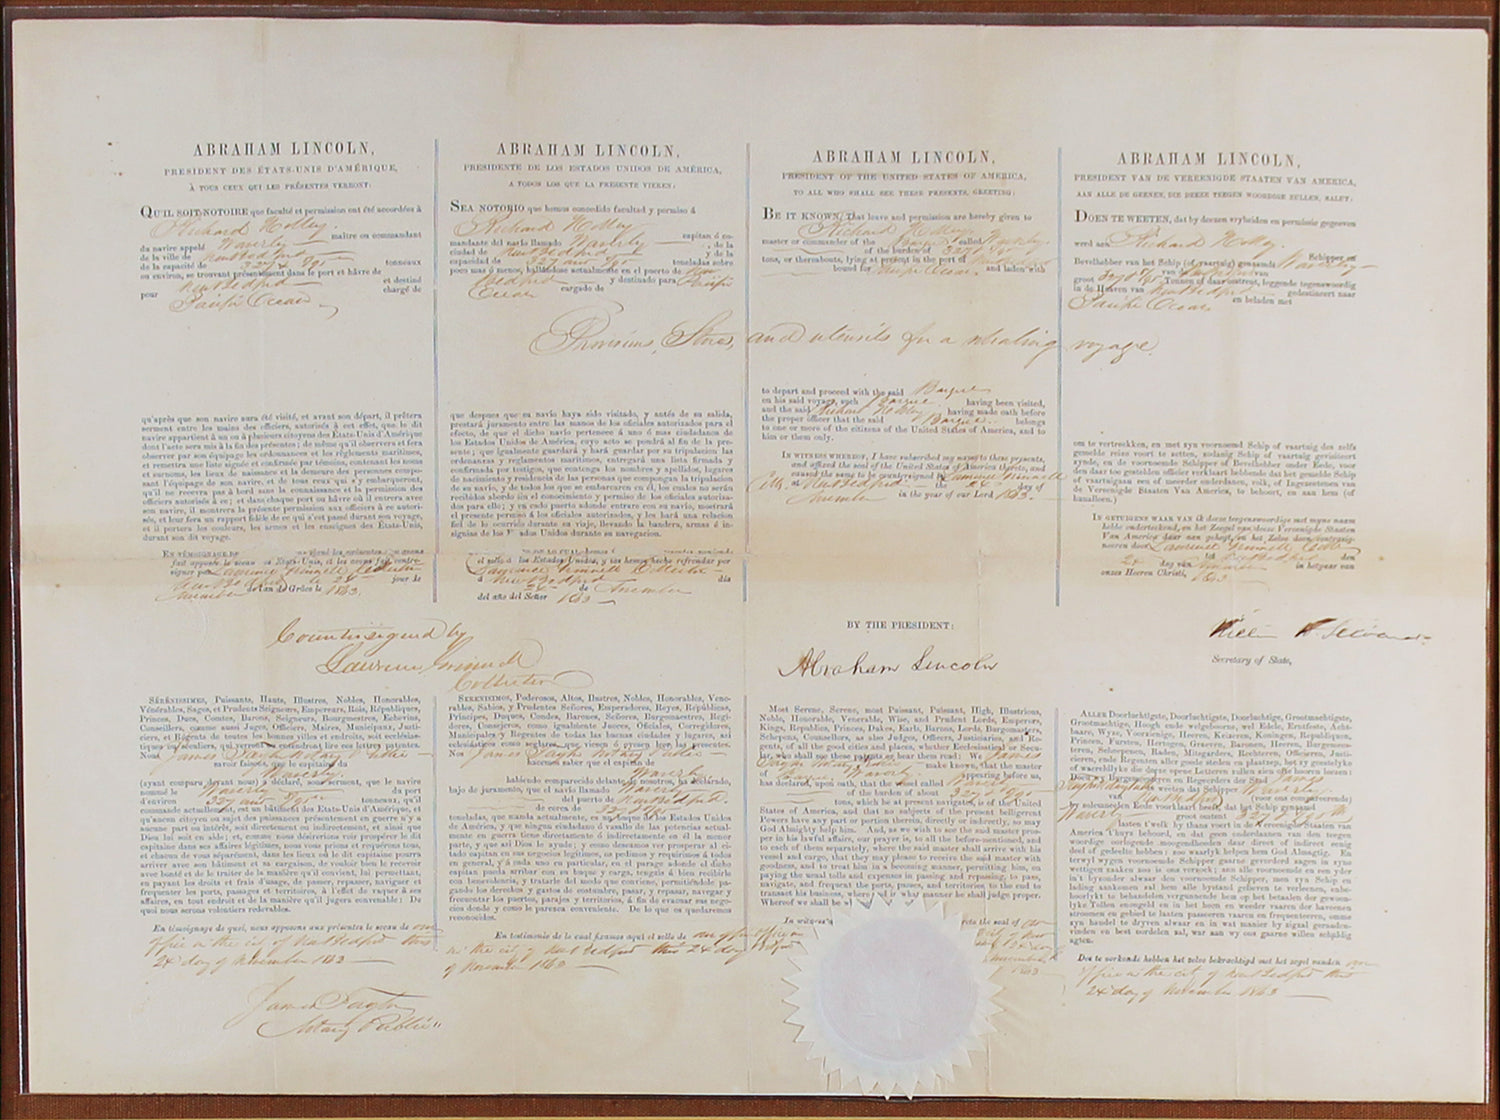 ABRAHAM LINCOLN,
PRESIDENT DES ÉTATS-UNIS D'AMÉRIQUE,
À TOUS CEUX QUI LES PRÉSENTES VERRONT:
QU'IL SOIT NOTOIRE que faculté et permission ont été accordées à
Richard Holley maître ou commandant
du navire appelé Waverly
de la ville de New Bedford
de la capacité de 327 & /95 tonneaux
ou environ, se trouvant présentement dans le port et hâvre de
New Bedford et destiné
pour Pacific Ocean chargé de
qu'après que son navire aura été visité, et avant son départ, il prêtera
serment entre les mains des officiers, autorisés à cet effet, que le dit
navire appartient à un ou à plusieurs citoyens des États-Unis d'Amérique
dont l'acte sera mis à la fin des présentes; de même qu'il observera et fera
observer par son équipage les ordonnances et les règlements maritimes,
et remettra une liste signée et confirmée par témoins, contenant les noms
et surnoms, les lieux de naissance et de demeure des personnes compo-
sant l'équipage de son navire, et de tous ceux qui s'y embarqueront,
qu'il ne recevra pas à bord sans la connaissance et la permission des
officiers autorisés à ce; et dans chaque port ou hâvre où il entrera avec
son navire, il montrera la présente permission aux officiers à ce autori-
sés, et leur fera un rapport fidèle de ce qui s'est passé durant son voyage,
et il portera les couleurs, les armes et les enseignes des États-Unis,
durant son dit voyage.
EN TÉMOIGNAGE DE
fait apposer le sceau États-Unis, et les avons fait contre-
signer par Lawrence Grinnell Collector
New Bedford le 24 jour de
November de l'an de Grâce le 1863.
ABRAHAM LINCOLN,
PRESIDENTE DE LOS ESTADOS UNIDOS DE AMÉRICA,
A TODOS LOS QUE LA PRESENTE VIEREN:
SEA NOTORIO que hemos concedido facultad y permiso á
Richard Holley capitan ó co-
mandante del navío llamado Waverly de la
ciudad de New Bedford y de la
capacidad de 327 and /95 toneladas sobre
poco mas ó menos, hallándose actualmente en el puerto de New
Bedford y destinado para Pacific
Ocean cargado de
que despues que su navío haya sido visitado, y antés de su salida,
prestará juramento entre las manos de los oficiales autorizados para el
efecto, de que el dicho navío pertenece á uno ó mas ciudadanos de
los Estados Unidos de América, cuyo acto se pondrá al fin de la pre-
sente; que igualmente guardará y hará guardar por su tripulacion las
ordenanzas y reglamentos marítimos, entregará una lista firmada y
confirmada por testigos, que contenga los nombres y apellidos, lugares
de nacimiento y residencia de las personas que compongan la tripulacion
de su navío, y de todos los que se embarcaren en él, los cuales no serán
recibidos abordo sin el conocimiento y permiso de los oficiales autoriza-
dos para ello; y en cada puerto adonde entrare con su navío, mostrará
el presente permiso á los oficiales autorizados, y les hará una relacion
fiel de lo ocurrido durante su viaje, llevando la bandera, armas é in-
signias de los Estados Unidos durante su navegacion.
el sello á los Estados Unidos, y las hemos hecho refrendar por
Lawrence Grinnell Collector
á New Bedford dia
24 de November
del año del Señor 1863
ABRAHAM LINCOLN,
PRESIDENT OF THE UNITED STATES OF AMERICA,
TO ALL WHO SHALL SEE THESE PRESENTS, GREETING:
BE IT KNOWN, That leave and permission are hereby given to
Richard Holley
master or commander of the Barque called Waverly
of the burden of 327 & /95
tons, or thereabouts, lying at present in the port of New Bedford
bound for Pacific Ocean, and laden with
Provisions, Stores, and utensils for a whaling voyage.
to depart and proceed with the said Barque
on his said voyage, such Barque having been visited,
and the said Richard Holley having made oath before
the proper officer that the said Barque belongs
to one or more of the citizens of the United States of America, and to
him or them only.
IN WITNESS WHEREOF, I have subscribed my name to these presents,
and affixed the seal of the United States of America thereto, and
caused the same to be countersigned by Lawrence Grinnell
at New Bedford the 24 day of
November in the year of our Lord 1863.
ABRAHAM LINCOLN,
PRESIDENT VAN DE VEREENIGDE STAATEN VAN AMERICA,
AAN ALLE DE GEENEN, DIE DEEZE TEEGEN WOORDIGE ZULLEN, SALUT:
DOEN TE WEETEN, dat by deezen vryheiden en permissie gegeeven
werd aan Richard Holley Schipper en
Bevelhebber van het Schip (of vaartuig) genaamd Waverly
van New Bedford van
groot 327 & /95 Tonnen of daaromtrent, leggende tegenswoordig
in de Haven van New Bedford gedestineert naar
Pacific Ocean en beladen met
om te vertreckken, en met zyn voornoemd Schip of vaartuig des zelfs
gemelde reize voort te zetten, zodanig Schip of vaartuig gevisiteert
zynde, en de voornoemde Schipper of Bevelhebber onder Eede, voor
den daar toe gestelden officier verklaart hebbende dat het gemelde Schip
of vaartuigaan een of meerder onderdanen, volk, of Ingezeetenen van
de Verenigde Staaten Van America, te behoort, en aan hem (of
hunalleen.)
IN GETUIGENE WAAR VAN ik deeze teegenswoordige met myne naam
hebbe onderteekend, en het Zeegel van deeze Verenigde Staaten
Van America daar aan gehegt, en het Zelve doen contrasig-
neeren door Lawrence Grinnell Coll
tot New Bedford den
24 day van November in het year van
onzes Heeren Christi, 1863
Countersigned by
Lawrence Grinnell
Collector
BY THE PRESIDENT:
Abraham Lincoln
William H. Seward
Secretary of State,
SÉRÉNISSIMES, Puissants, Hauts, Illustres, Nobles, Honorables,
Vénérables, Sages, et Prudents Seigneurs, Empereurs, Rois, Républiques,
Princes, Ducs, Comtes, Barons, Seigneurs, Bourgmestres, Echevins,
Conseillers, comme aussi Juges, Officiers, Maires, Municipaux, Justi-
ciers, et Régents de toutes les bonnes villes et endroits, soit ecclésias-
tiques ou séculiers, qui verront ou entendront lire ces lettres patentes.
Nous James Taylor Notary Public
savoir faisons, que le capitaine du
Waverly
(ayant comparu devant nous) a déclaré, sous serment, que le navire
nommé le Waverly du port
d'environ 327 and /95 tonneaux, qu'il
commande actuellement, est un bâtiment des États-Unis d'Amérique, et
qu'aucun citoyen ou sujet des puissances présentement en guerre n'y a
aucune part ou intérêt, soit directement ou indirectement, et ainsi que
Dieu lui soit en aide; et, comme nous désirerions voir prospérer le dit
capitaine dans ses affaires légitimes, nous vous prions et requérons tous,
et chacun de vous séparément, dans les lieux où le dit capitaine pourra
arriver avec son bâtiment et sa cargaison, de vouloir bien le recevoir
avec bonté et de le traiter de la manière qu'il convient, lui permettant,
en payant les droits et frais d'usage, de passer, repasser, naviguer et
frequenter les ports, passages et territoires, à l'effet de vaquer à ses
affaires, en tout endroit et de la manière qu'il jugera convenable: De
quoi nous serons volontiers redevables.
En témoignage de quoi, nous apposons aux présentes le sceau de our
office in the city of New Bedford this
24 day of November 1863
James Taylor
Notary Public
SERENISIMOS, Poderosos, Altos, Ilustres, Nobles, Honorables, Vene-
rables, Sabios, y Prudentes Señores, Emperadores, Reyes, Repúblicas,
Príncipes, Duques, Condes, Barones, Señores, Burgomaestres, Regi-
dores, Consejeros, como igualmente Jueces, Oficiales, Corregidores,
Municipales y Regentes de todas las buenas ciudades y lugares, así
eclesiásticos como seglares, que vieren ó oyeren leer las presentes.
Nos James Taylor Notary Public
hacemos saber que el capitan de
Waverly
habiendo comparecido delante de nosotros, ha declarado,
bajo de juramento, que el navío llamado Waverly
del puerto de New Bedford.
de cerca de 327 & /95
toneladas, que manda actualmente, es un buque de los Estados Unidos
de América, y que ningun ciudadano ó vasallo de las potencias actual-
mente en guerra tiene directamente ó indirectamente en él la menor
parte, y que así Dios le ayude; y como deseamos ver prosperar al ci-
tado capitan en sus negocios legítimos, os pedimos y requirimos á todos
en general, y á cada uno en particular, en el parage adonde el dicho
capitan pueda arribar con su buque y carga, tengais á bien recibirlo
con benevolencia, y tratarle del modo que conviene, permitiéndole, pa-
gando los derechos y gastos de costumbre, pasar, y repasar, navegar y
frecuentar los puertos, parajes y territorios, á fin de evacuar sus nego-
cios donde y como le parezca conveniente. De lo que os quedaremos
reconocidos.
En testimonio de lo cual ponemos aquí el sello de our office
in the city of New Bedford this 24 day
of November 1863
Most Serene, Serene, most Puissant, Puissant, High, Illustrious,
Noble, Honorable, Venerable, Wise, and Prudent Lords, Emperors,
Kings, Republics, Princes, Dukes, Earls, Barons, Lords, Burgomasters,
Schepens, Counsellors, as also Judges, Officers, Justiciaries, and Re-
gents, of all the good cities and places, whether Ecclesiastical or Secu-
lar, who shall see these presents or hear them read: We James
Taylor Notary Public make known, that the master
of Barque Waverly appearing before us,
has declared, upon oath, that the vessel called
of the burden of about 327 & /95
tons, which he at present navigates, is of the United
States of America, and that no subjects of the present belligerent
Powers have any part or portion therein, directly or indirectly, so may
God Almighty help him. And, as we wish to see the said master pros-
per in his lawful affairs, our prayer is, to all the before-mentioned, and
to each of them separately, where the said master shall arrive with his
vessel and cargo, that they may please to receive the said master with
goodness, and to treat him in a becoming manner, permitting him, on
paying the usual tolls and expenses in passing and repassing, to pass,
navigate, and frequent the ports, passes, and territories to the end to
transact his business, where and in what manner he shall judge proper.
Whereof we shall be w
In witness the seal of
City of New
Bedford 24 day
November
1863
ALLER Doorluchtigste, Doorluchtigste, Doorluchtige, Grootmachtigste,
Grootmachtige, Hoogh ende welgeboorne, wel Edele, Erntfeste, Acht-
baare, Wyze, Voorzienige, Heeren, Keizeren, Koningen, Republiquen,
Princen, Fursten, Hertogen, Graeven, Baronen, Heeren, Burgemees-
teren, Scheepenen, Raden, Mitsgaders, Rechteren, Officieren, Justi-
cieren, ende Regenten aller goede steden en plaatzen, het zy geestelyke
of waereldlyke die deeze opene Letteren zullen zien ofte hooren leezen:
Doen wy Burgermeesteren en Regeerders der Stad James
Taylor Notary Public weeten dat Schipper Waverly
van New Bedford (voor ons compareerende)
by solemneelen Eede voorklaart heeft, dat het Schip genaamd
Waverly groot ontent 327 & /95th
lasten t'welk by thans voert in de Vereenigde Staaten van
America t'huys behoord, en dat geen onderdaanen van den teegen
woordige oorlogende moogendheeden daar direct of indirect eenig
deel of gedeelte hebben; zoo waarlyk helpen hem God Almagtig. En
terwyl wygen voornoemde Schipper gaarne gevorderd sagen in zyne
wettigen zaaken zoo is ons verzoek; aan alle voornoemde en een yder
in't byzonder alwaar den voornoemde Schipper, men zyn Schip en
lading aankomen sal hem alle bystand gelieven te verleenen, enbe-
hoorlykt te behandelen vergunnende hem op het betaalen der gewoon-
lyke Tollen enongeld en in het heen en weeder vaaren der haevenen
stroomen en gebied te laaten passeeren vaaren en frequenteeren, omme
zyn handel te dryven alwaar en in wat manier hy zigeal geraaden-
vinden en best oordelen zal, war aan wy ons gaarne willen schuldig
agten.
Des te oorkonde hebben het zelve bekrachtigd met het zegel vanden our
office in the city of New Bedford this
24 day of November 1863